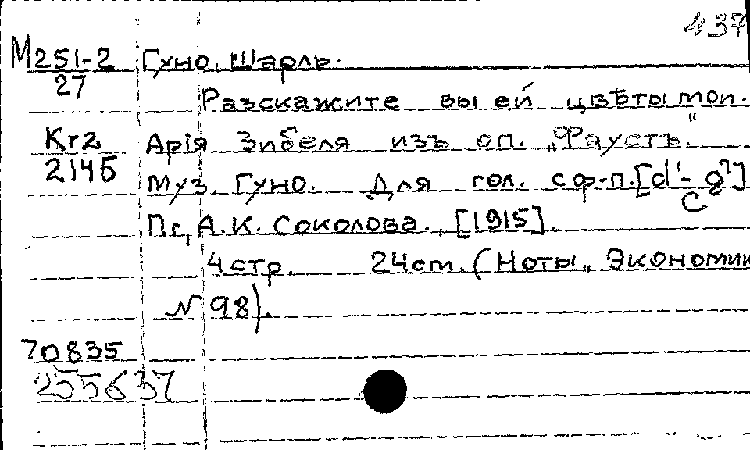 437
М251-2 Гуно, Шарль.
27
Разскажите вы ей цвѣты мои.
Kr2 Арія Зибеля изъ оп. „Фаустъ“
2145 муз. Гуно. Для гол. с ф-п. [d'- g²]
C
П.г., А.К. Соколова. [1915].
4 стр. 24 cm. (Ноты „Экономик
№ 98).
70835
255637